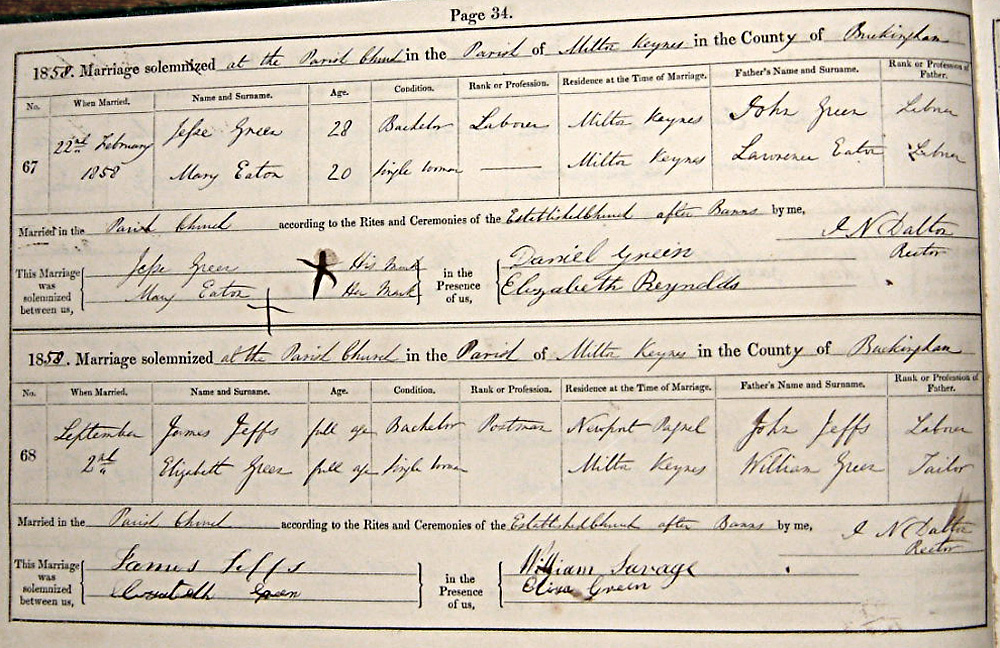 Page 34.
1858. Marriage solemnized at the Parish Church in the Parish of Milton Keynes in the County of Buckingham
No. When Married. Name and Surname. Age. Condition. Rank or Profession. Residence at the Time of Marriage. Father's Name and Surname. Rank or Profession of Father.
22nd February Jesse Green 28 Bachelor Laborer Milton Keynes John Green Laborer
67 1858 Mary Eaton 20 Single Woman Milton Keynes Lawrence Eaton Laborer
Married in the Parish Church according to the Rites and Ceremonies of the Established Church after Banns by me,
J N Dalton
Rector
This Marriage was solemnized between us,
Jesse Green His Mark
Mary Eaton Her Mark
in the Presence of us,
Daniel Green
Elizabeth Reynolds
1858. Marriage solemnized at the Parish Church in the Parish of Milton Keynes in the County of Buckingham
No. When Married. Name and Surname. Age. Condition. Rank or Profession. Residence at the Time of Marriage. Father's Name and Surname. Rank or Profession of Father.
September James Jeffs full age Bachelor Postman Newport Pagnel John Jeffs Laborer
68 2nd Elizabeth Green full age Single Woman Milton Keynes William Green Tailor
Married in the Parish Church according to the Rites and Ceremonies of the Established Church after Banns by me,
J N Dalton
Rector
This Marriage was solemnized between us,
James Jeffs
Green
in the Presence of us,
William Savage
Eliza Green